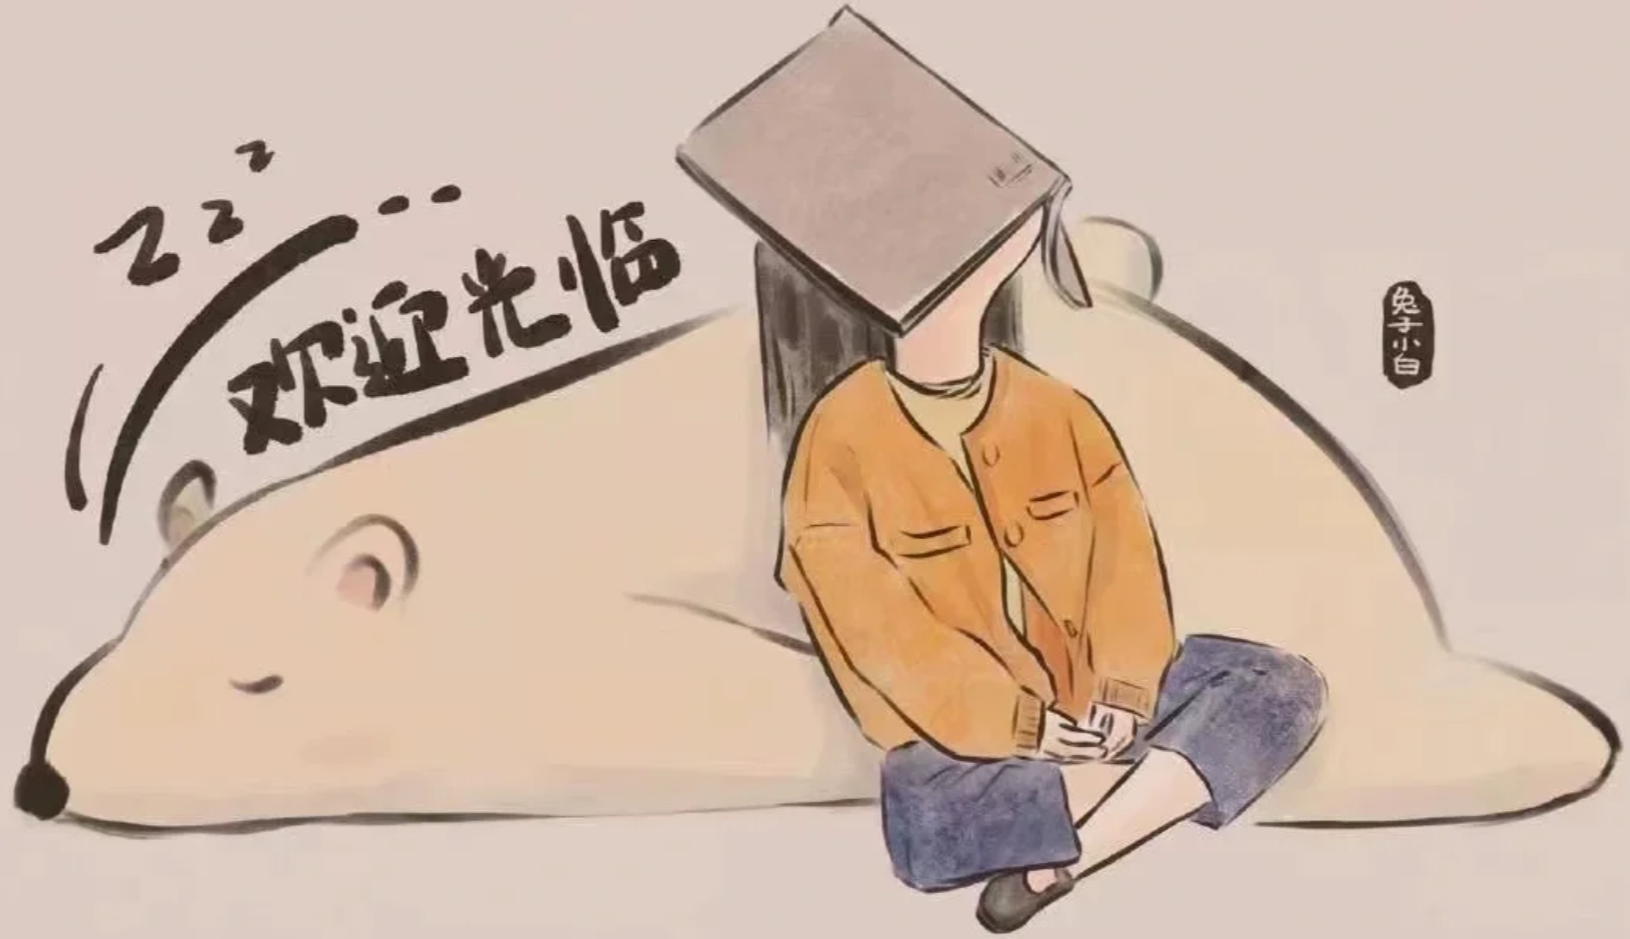 zzz
欢迎光临
兔子小白